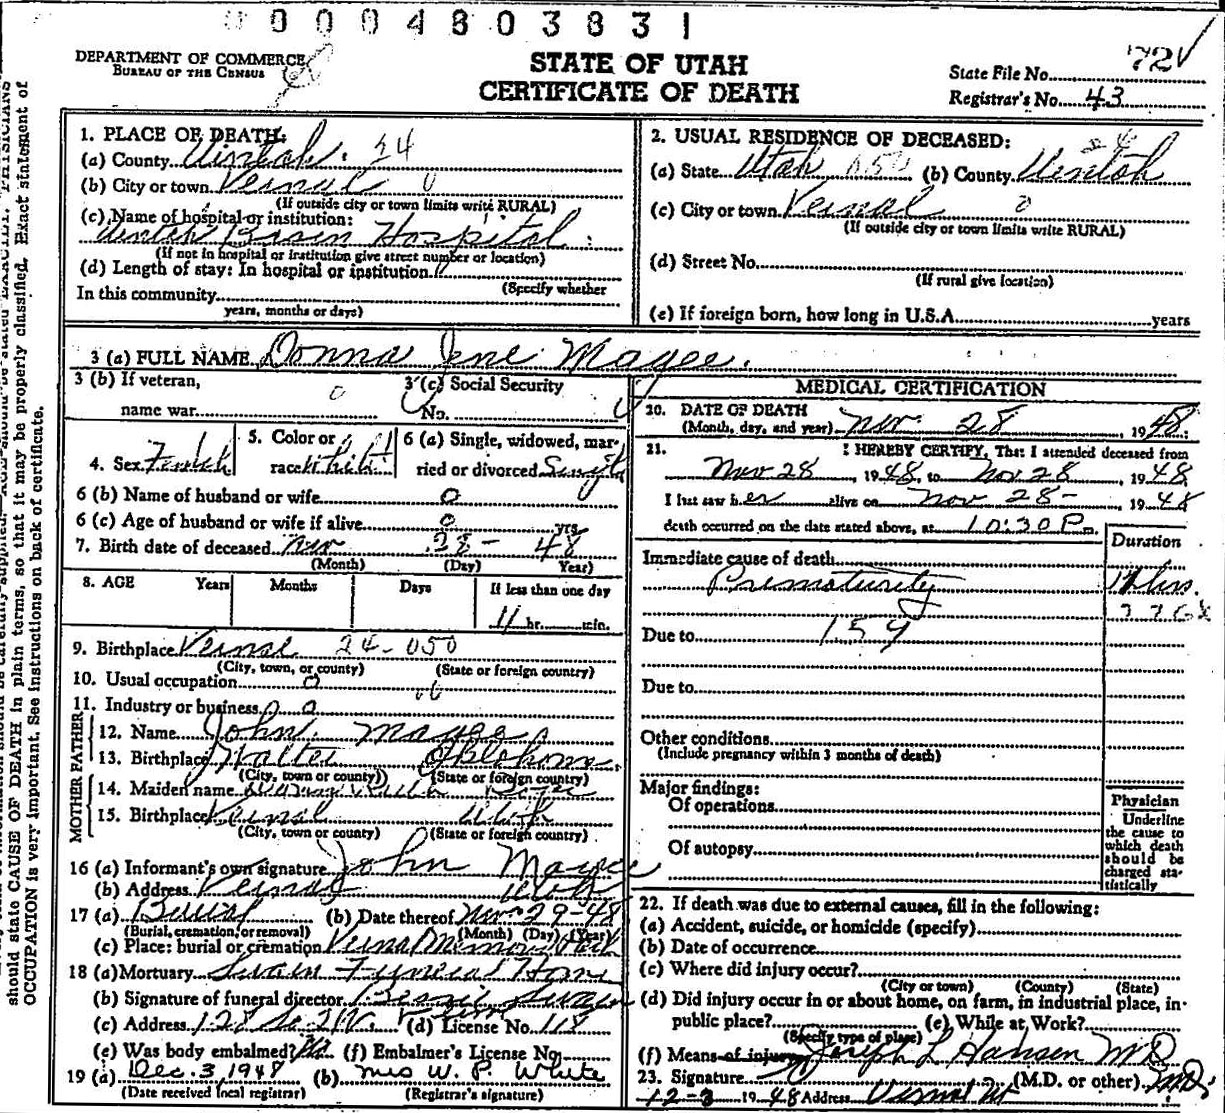 0000480 3831
DEPARTMENT OF COMMERCE
BUREAU OF THE CENSUS
STATE OF UTAH
CERTIFICATE OF DEATH
State File No. 72
Registrar's No. 43
1. PLACE OF DEATH:
(a) County Uintah. 24
(b) City or town Vernal 0
(If outside city or town limits write RURAL)
(c) Name of hospital or institution:
Uintah Basin Hospital
(If not in hospital or institution give street number or location)
(d) Length of stay: In hospital or institution
(Specify whether
In this community
years, months or days)
2. USUAL RESIDENCE OF DECEASED: 24
(a) State Utah 050 (b) County Uintah
(c) City or town Vernal 0
(If outside city or town limits write RURAL)
(d) Street No.
(If rural give location)
(e) If foreign born, how long in U.S.A. years
3 (a) FULL NAME Donna Jene Magee.
3 (b) If veteran,
name war 0
3 (c) Social Security
No.
4. Sex Female
5. Color or
race White
6 (a) Single, widowed, mar-
ried or divorced Single
6 (b) Name of husband or wife 0
6 (c) Age of husband or wife if alive 0 yrs.
7. Birth date of deceased Nov 28- 48
(Month) (Day) Year)
8. AGE Years Months Days If less than one day
11 hr. min.
9. Birthplace Vernal 24-050
(City, town, or county) (State or foreign country)
10. Usual occupation 0
11. Industry or business 0
FATHER
12. Name John Magee
13. Birthplace Walter Oklahoma
(City, town or county) (State or foreign country)
MOTHER
14. Maiden name
15. Birthplace Vernal Utah
(City, town or county) (State or foreign country)
16 (a) Informant's own signature John Magee
(b) Address Vernal Utah
17 (a) Burial (b) Date thereof Nov 29-48
(Burial, cremation, or removal) (Month) (Day) (Year)
(c) Place: burial or cremation Vernal Memorial Park
18 (a) Mortuary Swain Funeral Home
(b) Signature of funeral director Bessie Swain
(c) Address 128 So 2 W. Vernal (d) License No. 118
(e) Was body embalmed? No (f) Embalmer's License No.
19 (a) Dec. 3, 1948 (b) Mrs W. P. White
(Date received local registrar) (Registrar's signature)
MEDICAL CERTIFICATION
20. DATE OF DEATH
(Month, day, and year) Nov. 28 1948.
21. I HEREBY CERTIFY, That I attended deceased from
Nov 28, 1948, to Nov 28, 1948
I last saw her alive on Nov 28- 1948
death occurred on the date stated above, at 10:30 P m.
Duration
Immediate cause of death
Prematurity 11 hrs.
Due to 159
Due to
Other conditions
(Include pregnancy within 3 months of death)
Major findings:
Of operations
Of autopsy
Physician
Underline
the cause to
which death
should be
charged sta-
tistically
22. If death was due to external causes, fill in the following:
(a) Accident, suicide, or homicide (specify)
(b) Date of occurrence
(c) Where did injury occur?
(City or town) (County) (State)
(d) Did injury occur in or about home, on farm, in industrial place, in-
public place? (e) While at Work?
(Specify type of place)
(f) Means of injury Joseph L Hansen MD
23. Signature (M.D. or other) M.D.
12-3 1948 Address Vernal Ut
should state CAUSE OF DEATH in plain terms, so that it may be properly classified. Exact statement of
OCCUPATION is very important. See instructions on back of certificate.